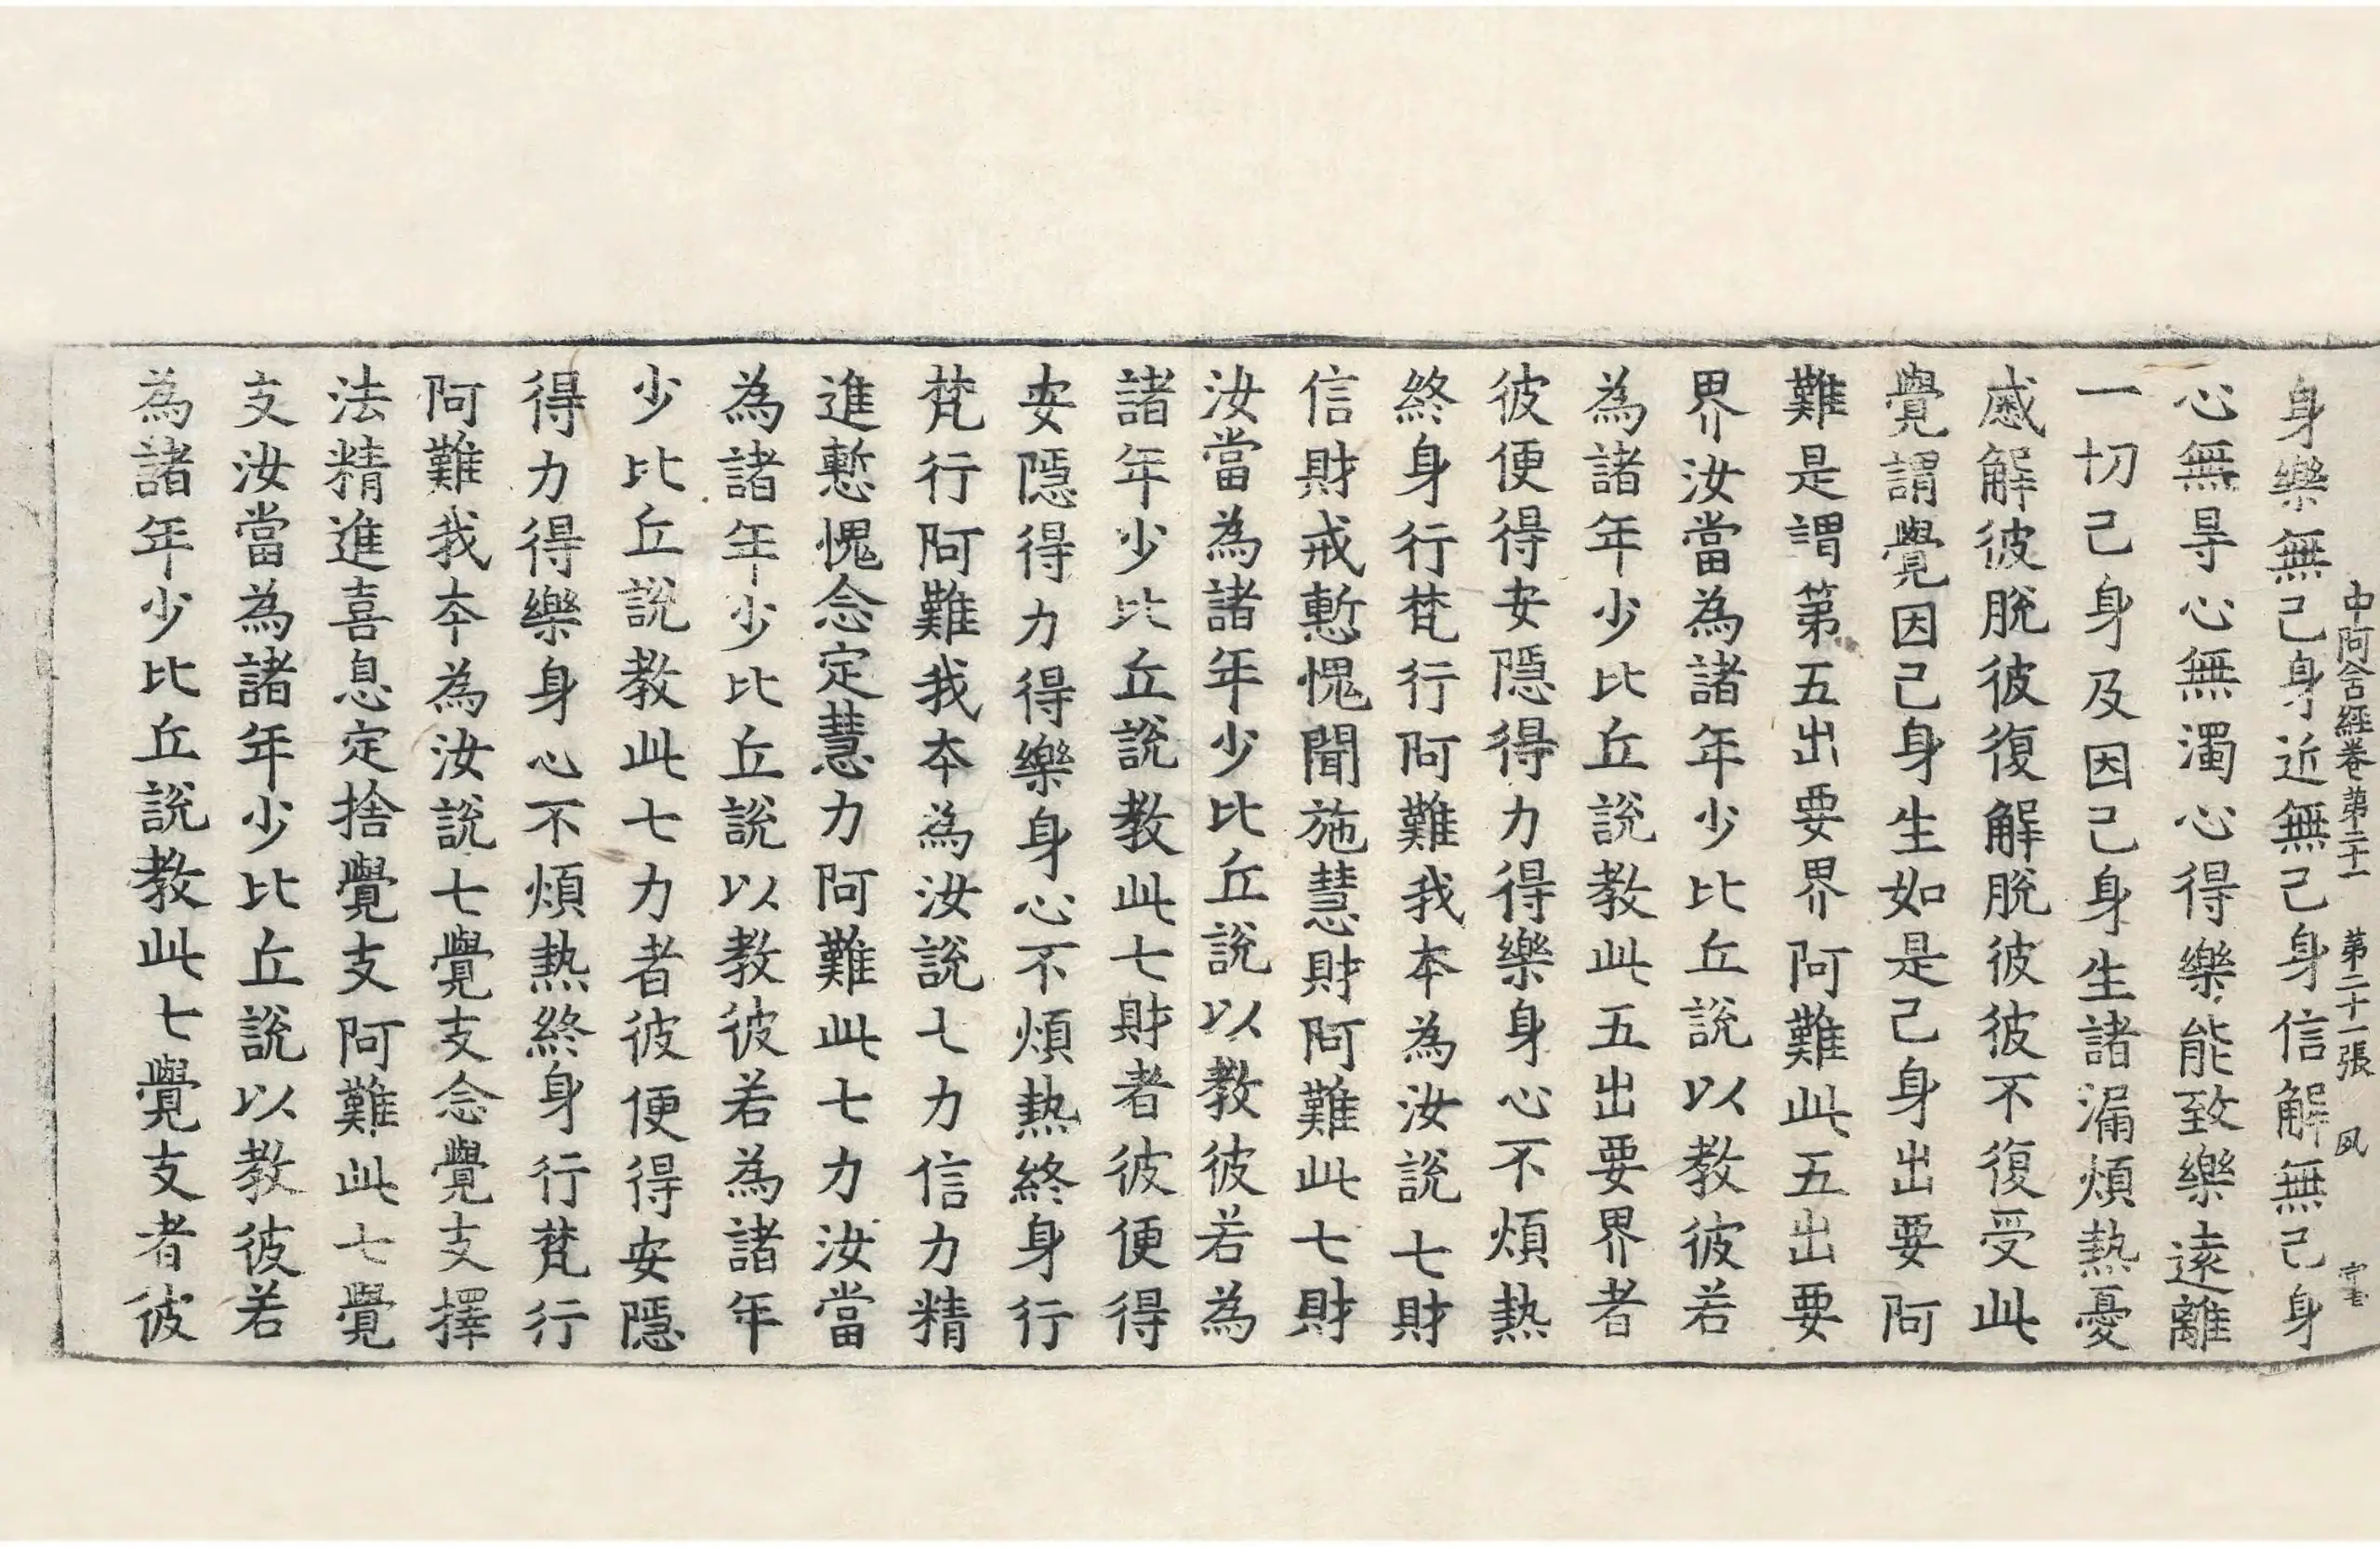 中阿含經卷第二十一　第二十一張　夙
身樂無己身近無己身信解無己身
心無㝵心無濁心得樂能致樂遠離
一切己身及因己身生諸漏煩熱憂
慼解彼脫彼復解脫彼彼不復受此
覺謂覺因己身生如是己身出要阿
難是謂第五出要界阿難此五出要
界汝當為諸年少比丘說以教彼若
為諸年少比丘說教此五出要界者
彼便得安隱得力得樂身心不煩熱
終身行梵行阿難我本為汝說七財
信財戒慙愧聞施慧財阿難此七財
汝當為諸年少比丘說以教彼若為
諸年少比丘說教此七財者彼便得
安隱得力得樂身心不煩熱終身行
梵行阿難我本為汝說七力信力精
進慙愧念定慧力阿難此七力汝當
為諸年少比丘說以教彼若為諸年
少比丘說教此七力者彼便得安隱
得力得樂身心不煩熱終身行梵行
阿難我本為汝說七覺支念覺支擇
法精進喜息定捨覺支阿難此七覺
支汝當為諸年少比丘說以教彼若
為諸年少比丘說教此七覺支者彼